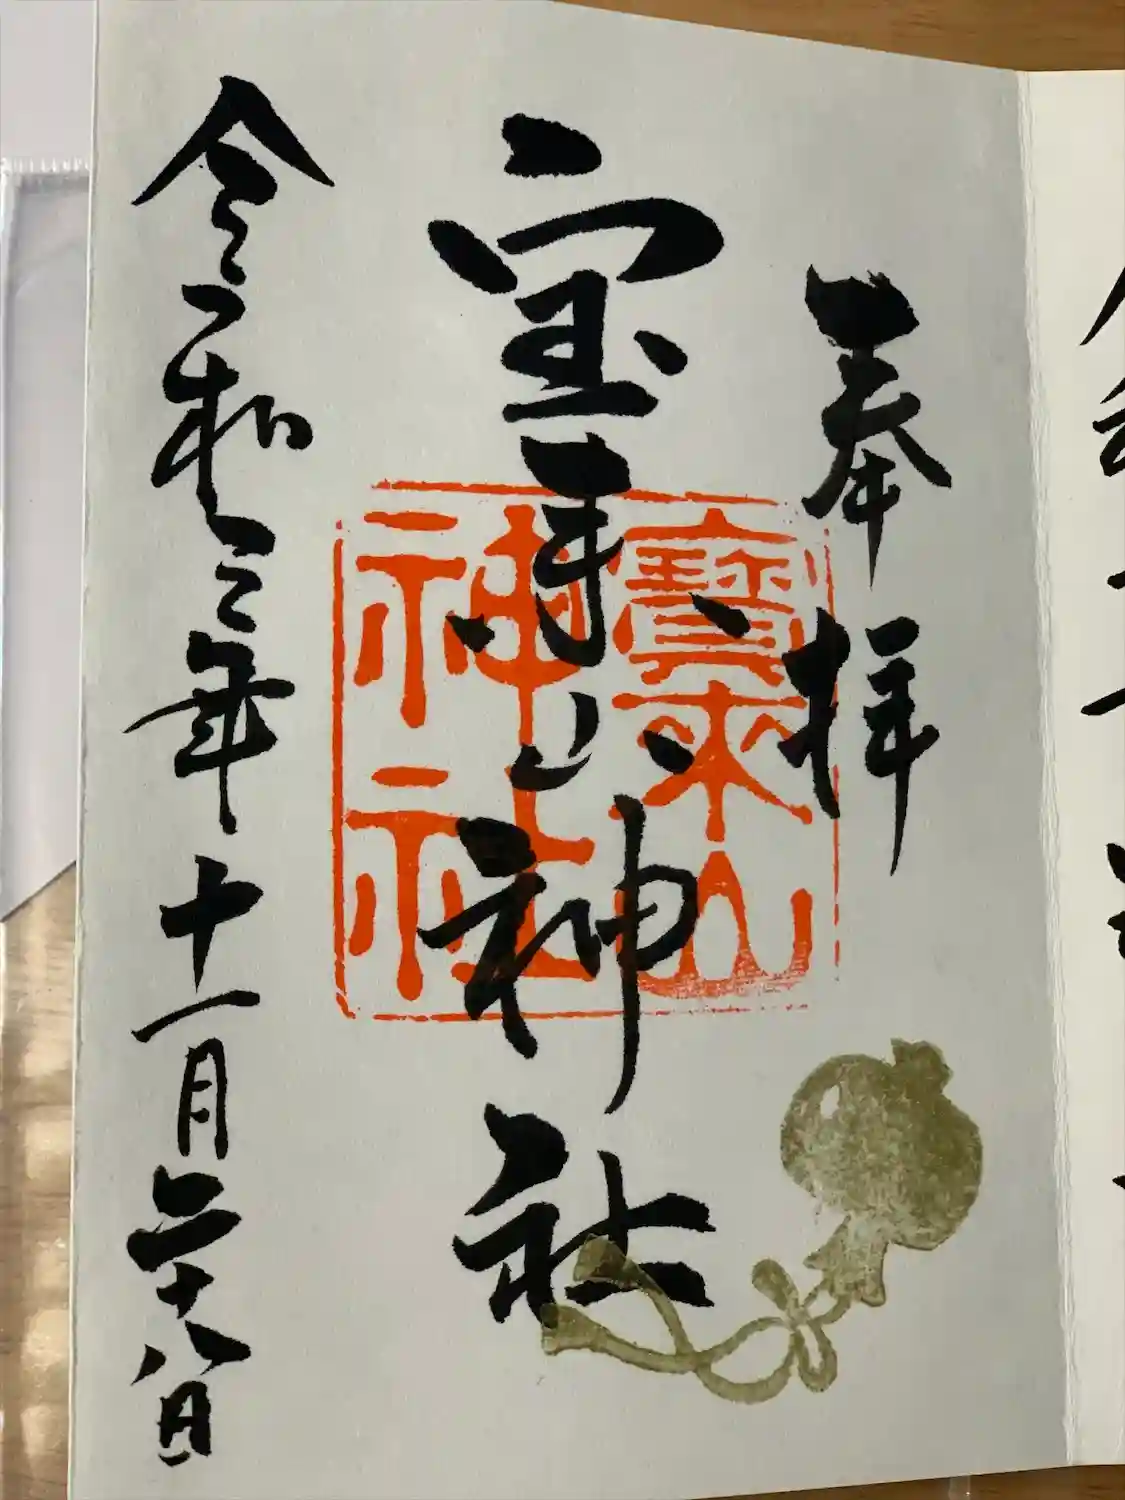 奉拝
宝来山神社
寳来山
神社
令和三年十一月二十八日